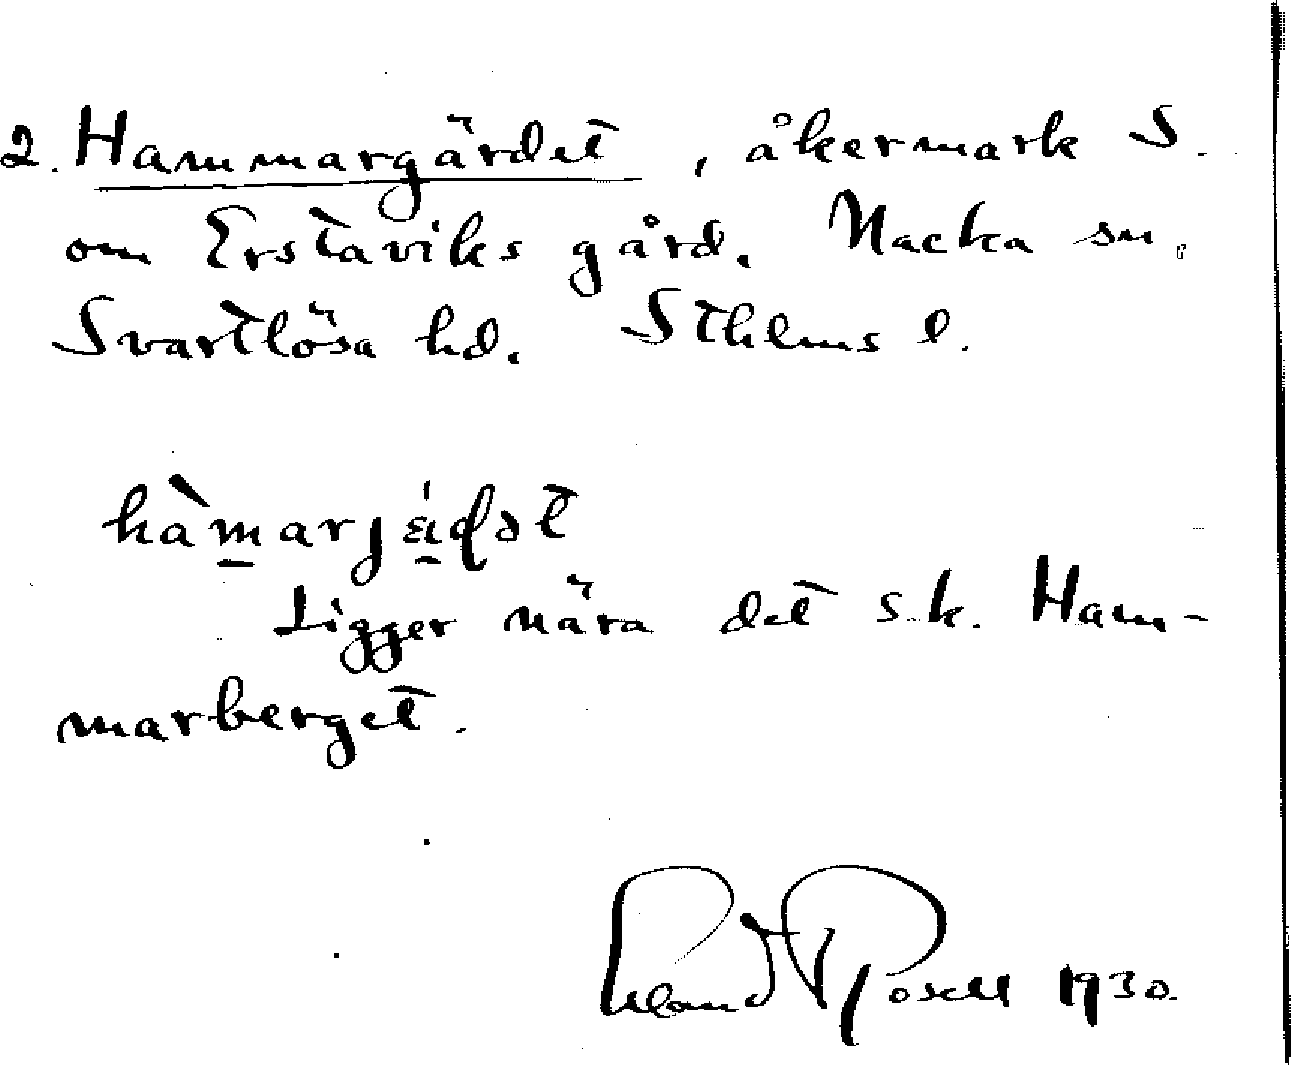 2. Hammargärdet, åkermark S.
om Erstaviks gård. Nacka sn.
Svartlösa hd. Sthlms l.
Ligger nära det s.k. Ham-
marberget.
Rosell 1930.